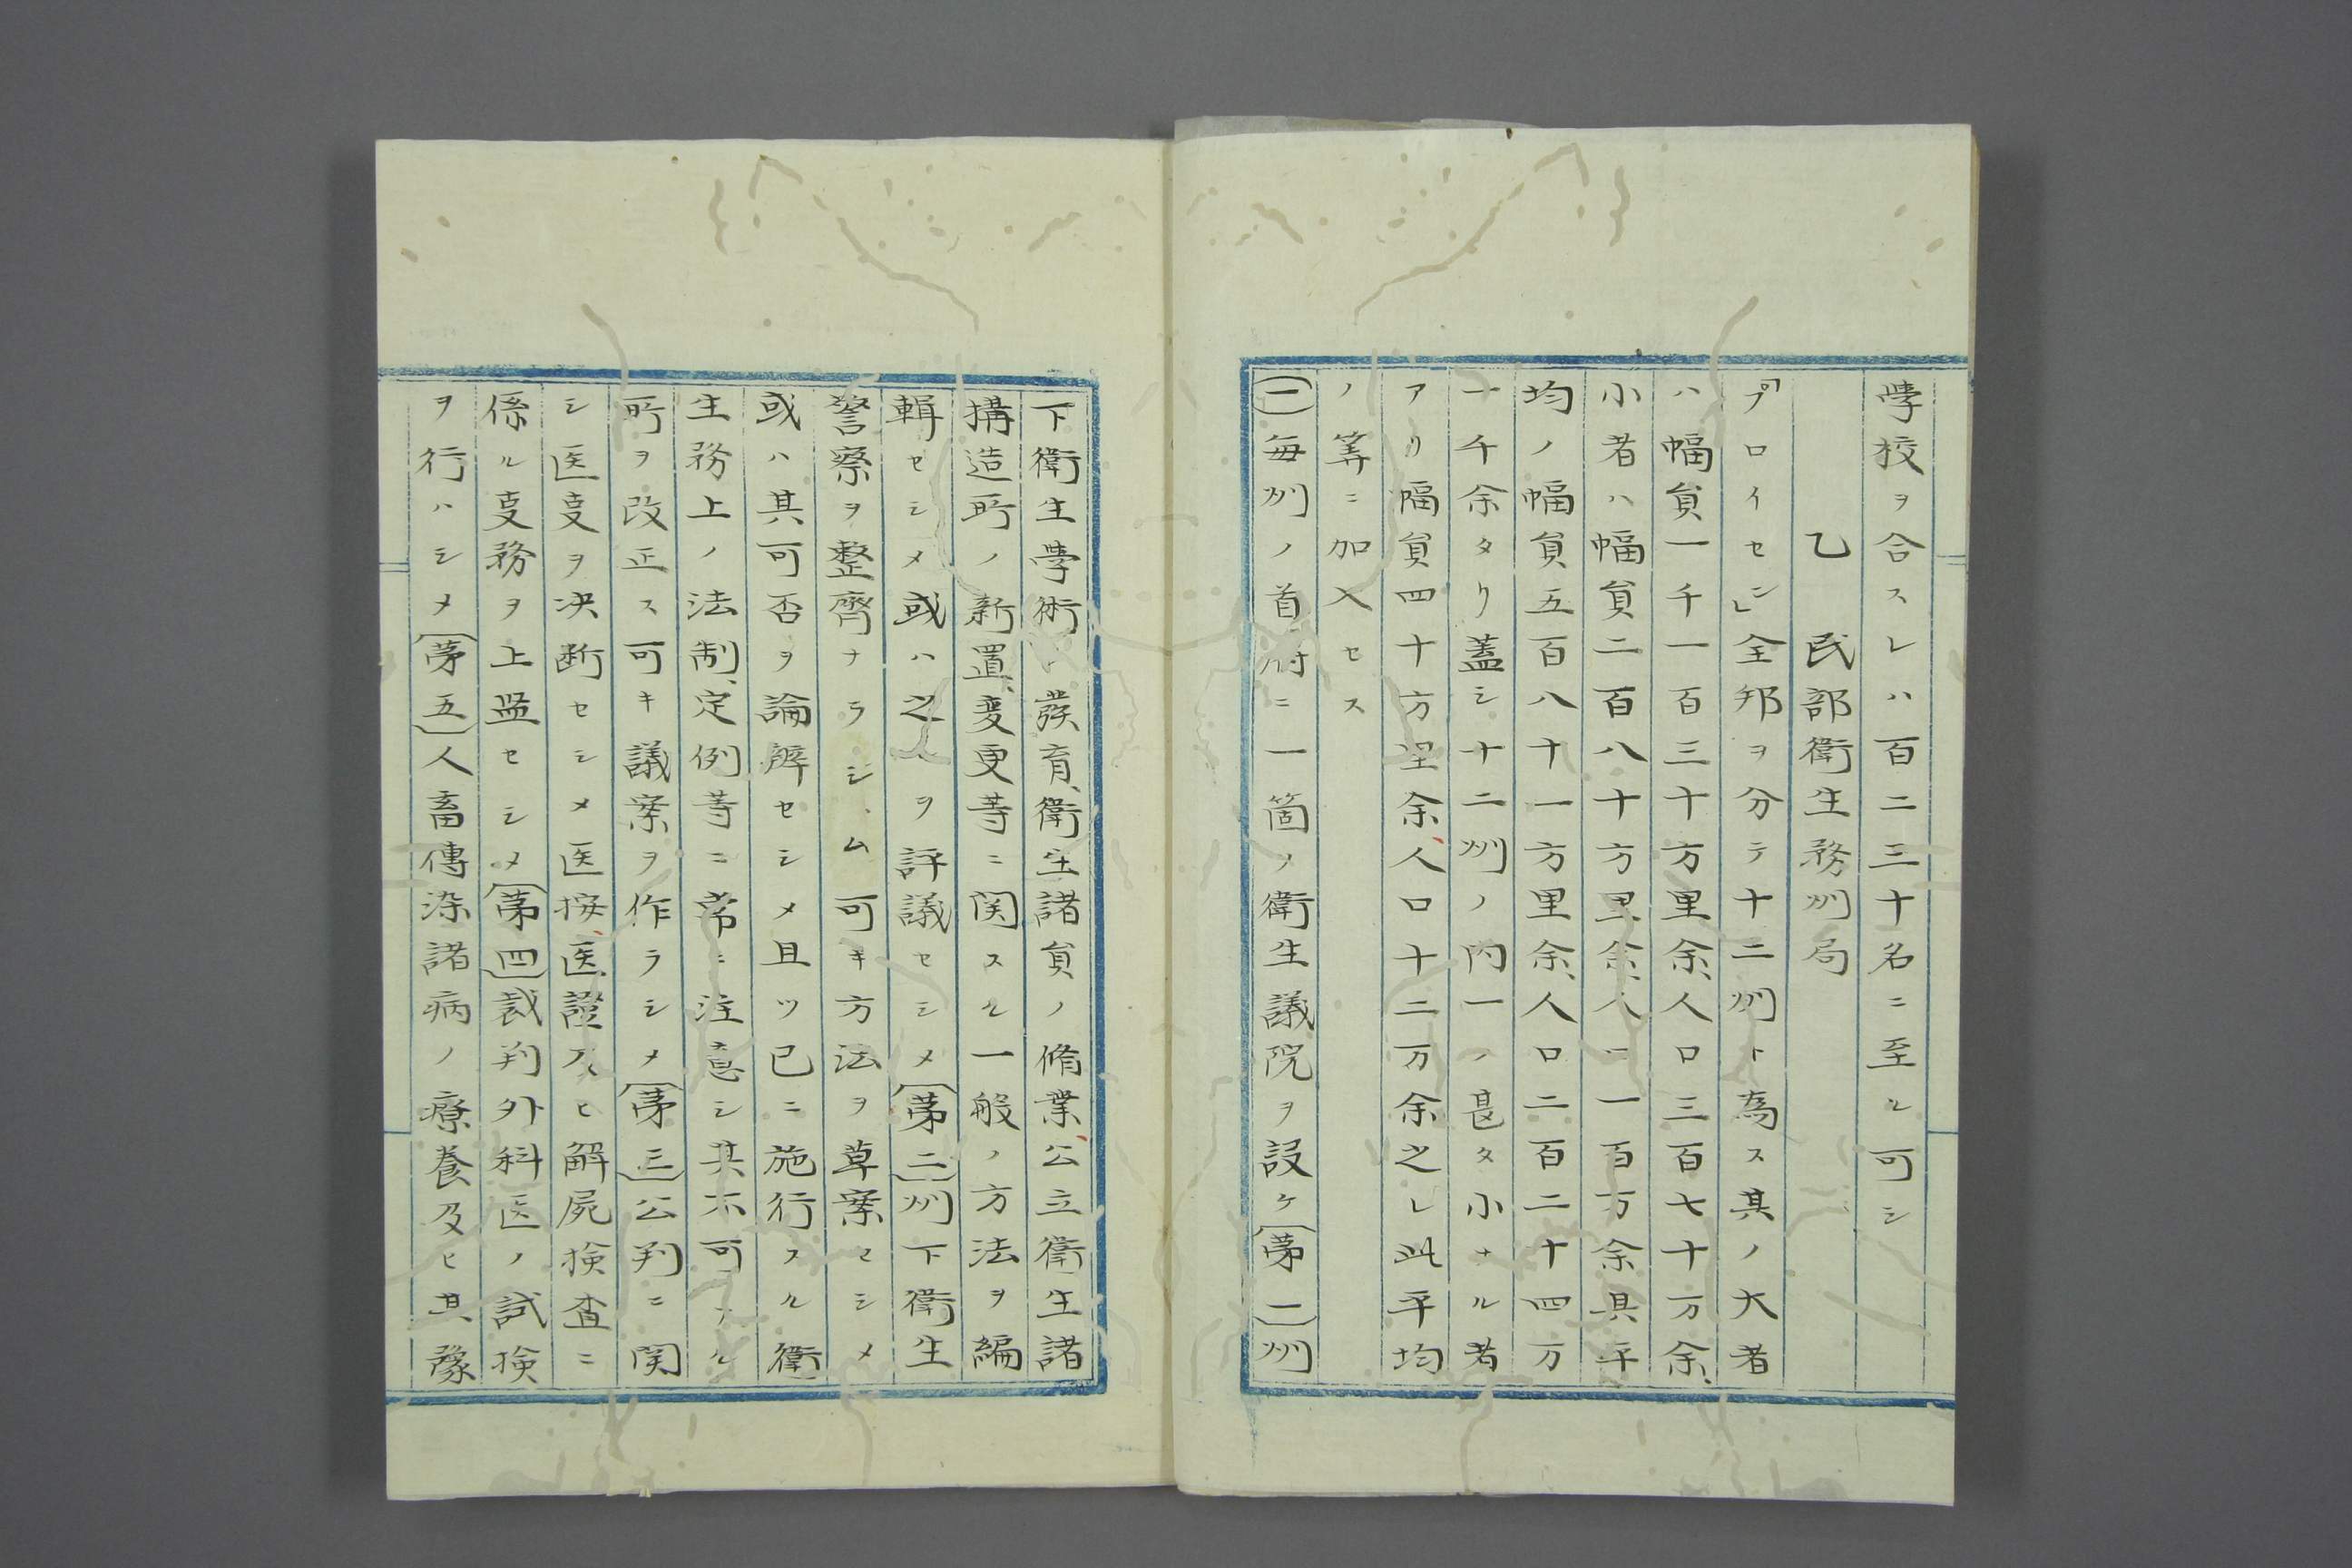 學校ヲ合スレハ百二三十名ニ至ル可シ
乙　民部衛生務州局
「プロイセン」全邦ヲ分テ十二州ト為ス其ノ大者
ハ幅員一千一百三十方里余、人口三百七十万余、
小者ハ幅員二百八十方里余、人口一百万余具平
均ノ幅員五百八十一方里余、人口二百二十四万
一千余タリ蓋シ十二州ノ内一ノ甚タ小ナル者
アリ幅員四十方里余、人口十二万余之レ此平均
ノ筭ニ加入セス
(一)毎州ノ首府ニ一箇ノ衛生議院ヲ設ケ(第一)州
下衛生學術ノ發育、衛生諸員ノ脩業、公立衛生諸
搆造所ノ新置、変更等ニ関スル一般ノ方法ヲ編
輯セシメ或ハ之ヲ評議セシメ(第二)州下衛生
警察ヲ整齊ナラシム可キ方法ヲ草案セシメ
或ハ其可否ヲ論辨セシメ且ツ已ニ施行スル衛
生務上ノ法制、定例等ニ常ニ注意シ其不可ナル
所ヲ改正ス可キ議案ヲ作ラシメ(第三)公判ニ関
シ医叓ヲ决断セシメ医按、医證及ヒ解屍検査ニ
係ル叓務ヲ上盟セシメ(第四)裁判外科医ノ試検
ヲ行ハシメ(第五)人畜傳染諸病ノ療養及ヒ其豫